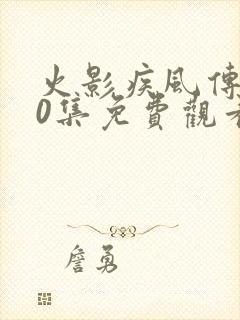 火影疾風傳
0集免費觀看
詹勇